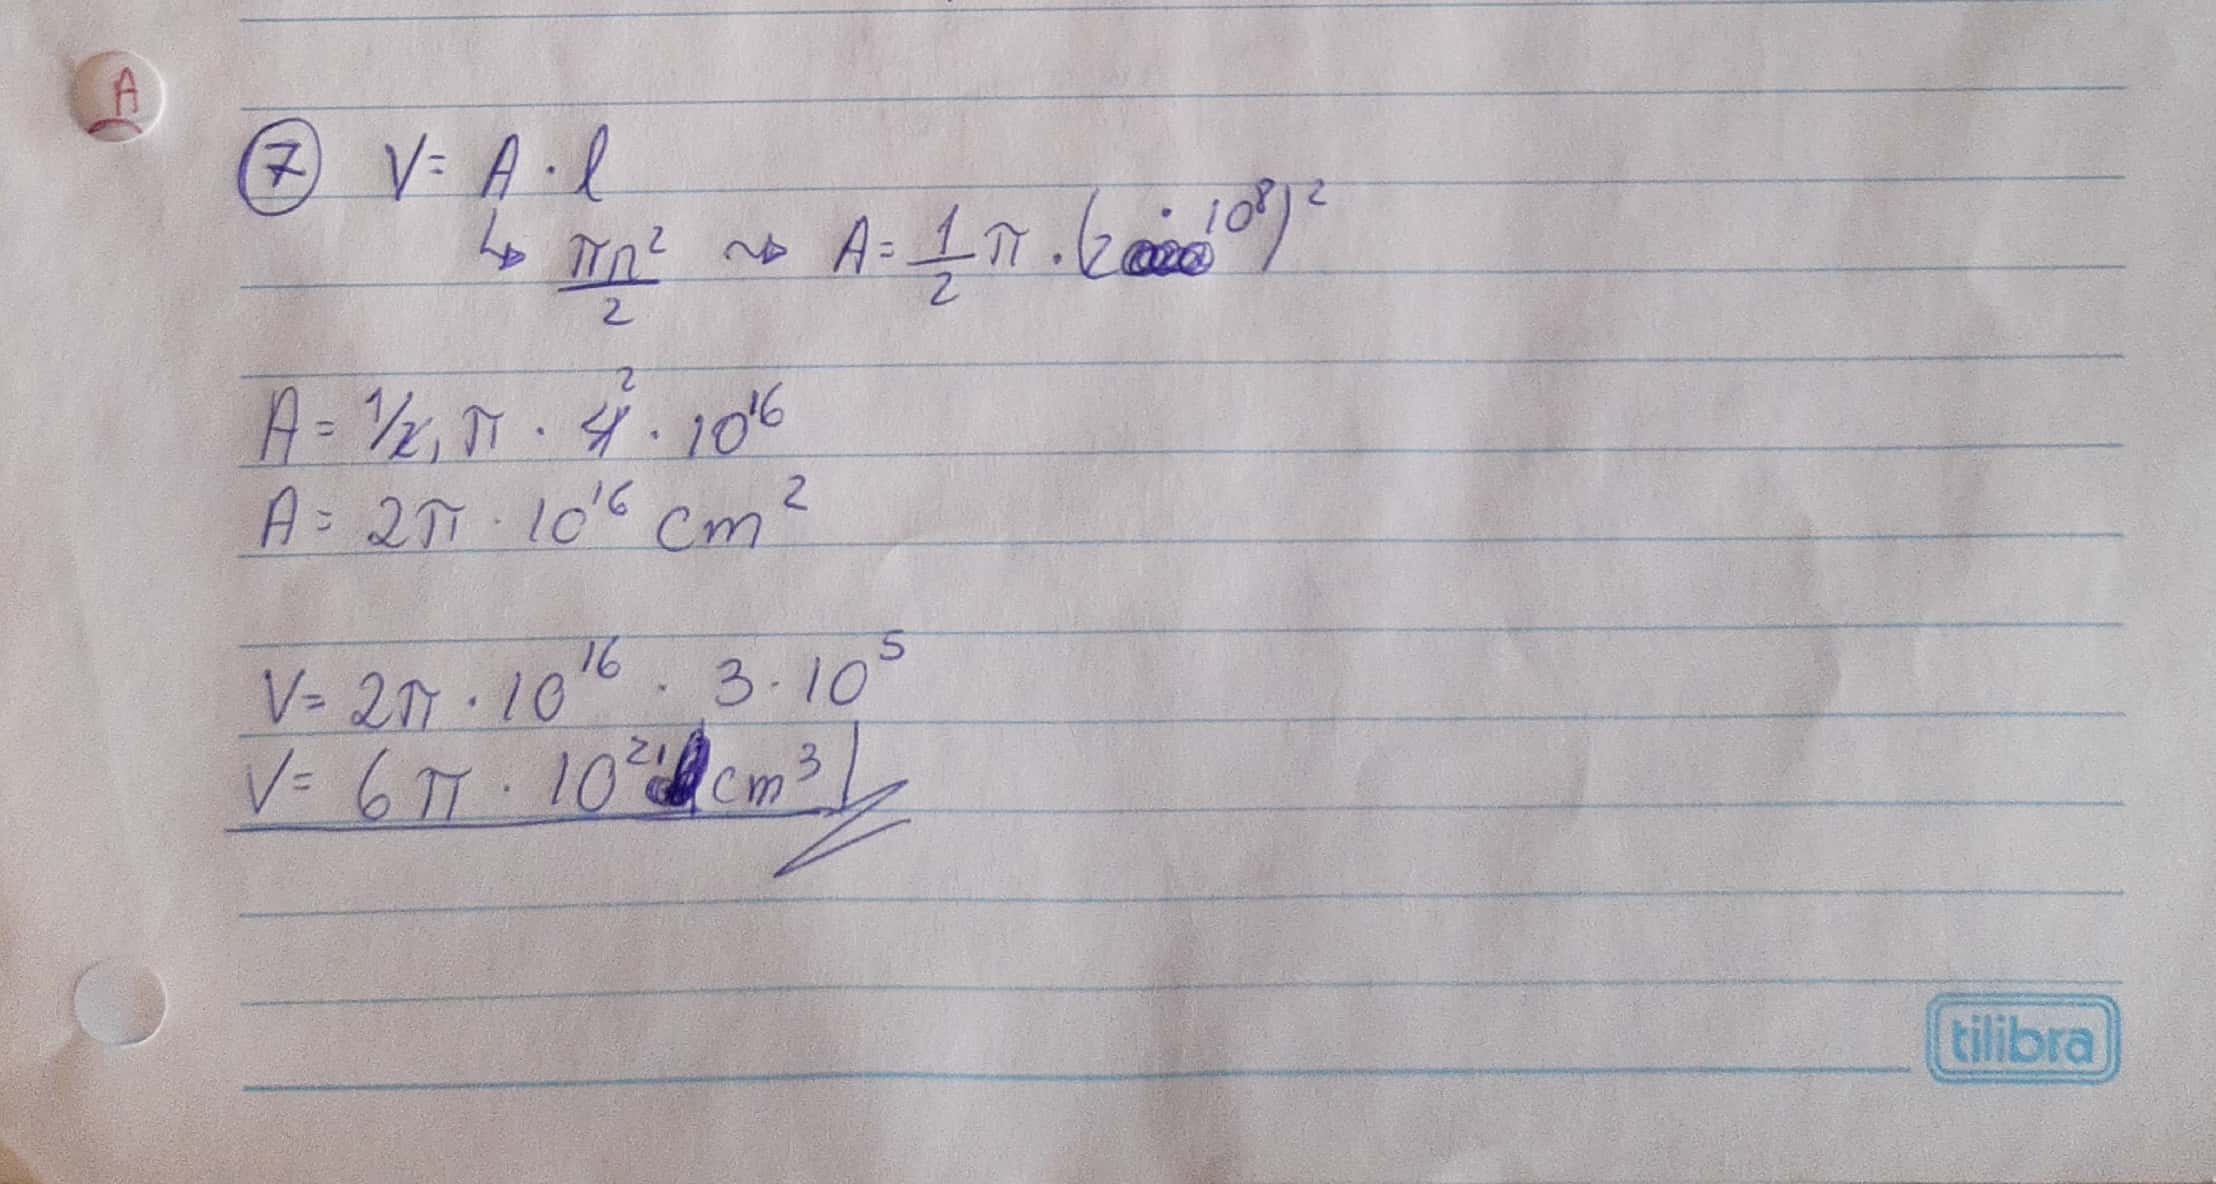 A
⑦ V = A · l
↳ πr²/2 ⇝ A = 1/2 π · (2 · 10⁸)²
A = 1/2 · π · 4² · 10¹⁶
A = 2π · 10¹⁶ cm²
V = 2π · 10¹⁶ · 3 · 10⁵
V = 6π · 10²¹ cm³
tilibra